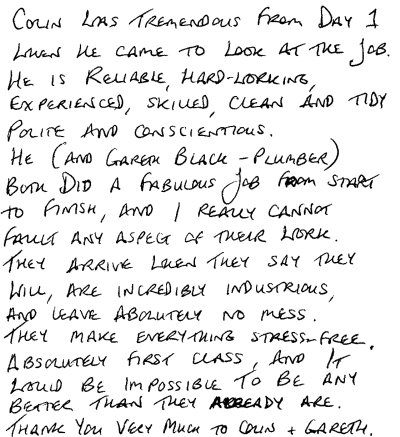 COLIN WAS TREMENDOUS FROM DAY 1
WHEN HE CAME TO LOOK AT THE JOB.
HE IS RELIABLE, HARD-WORKING,
EXPERIENCED, SKILLED, CLEAN AND TIDY
POLITE AND CONSCIENTIOUS.
HE (AND GARETH BLACK - PLUMBER)
BOTH DID A FABULOUS JOB FROM START
TO FINISH, AND I REALLY CANNOT
FAULT ANY ASPECT OF THEIR WORK.
THEY ARRIVE WHEN THEY SAY THEY
WILL, ARE INCREDIBLY INDUSTRIOUS,
AND LEAVE ABOLUTELY NO MESS.
THEY MAKE EVERYTHING STRESS-FREE.
ABSOLUTELY FIRST CLASS, AND IT
WOULD BE IMPOSSIBLE TO BE ANY
BETTER THAN THEY ALREADY ARE.
THANK YOU VERY MUCH TO COLIN + GARETH.